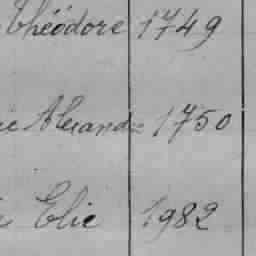 Théodore 1749
Alexandre 1750
Elie 1982